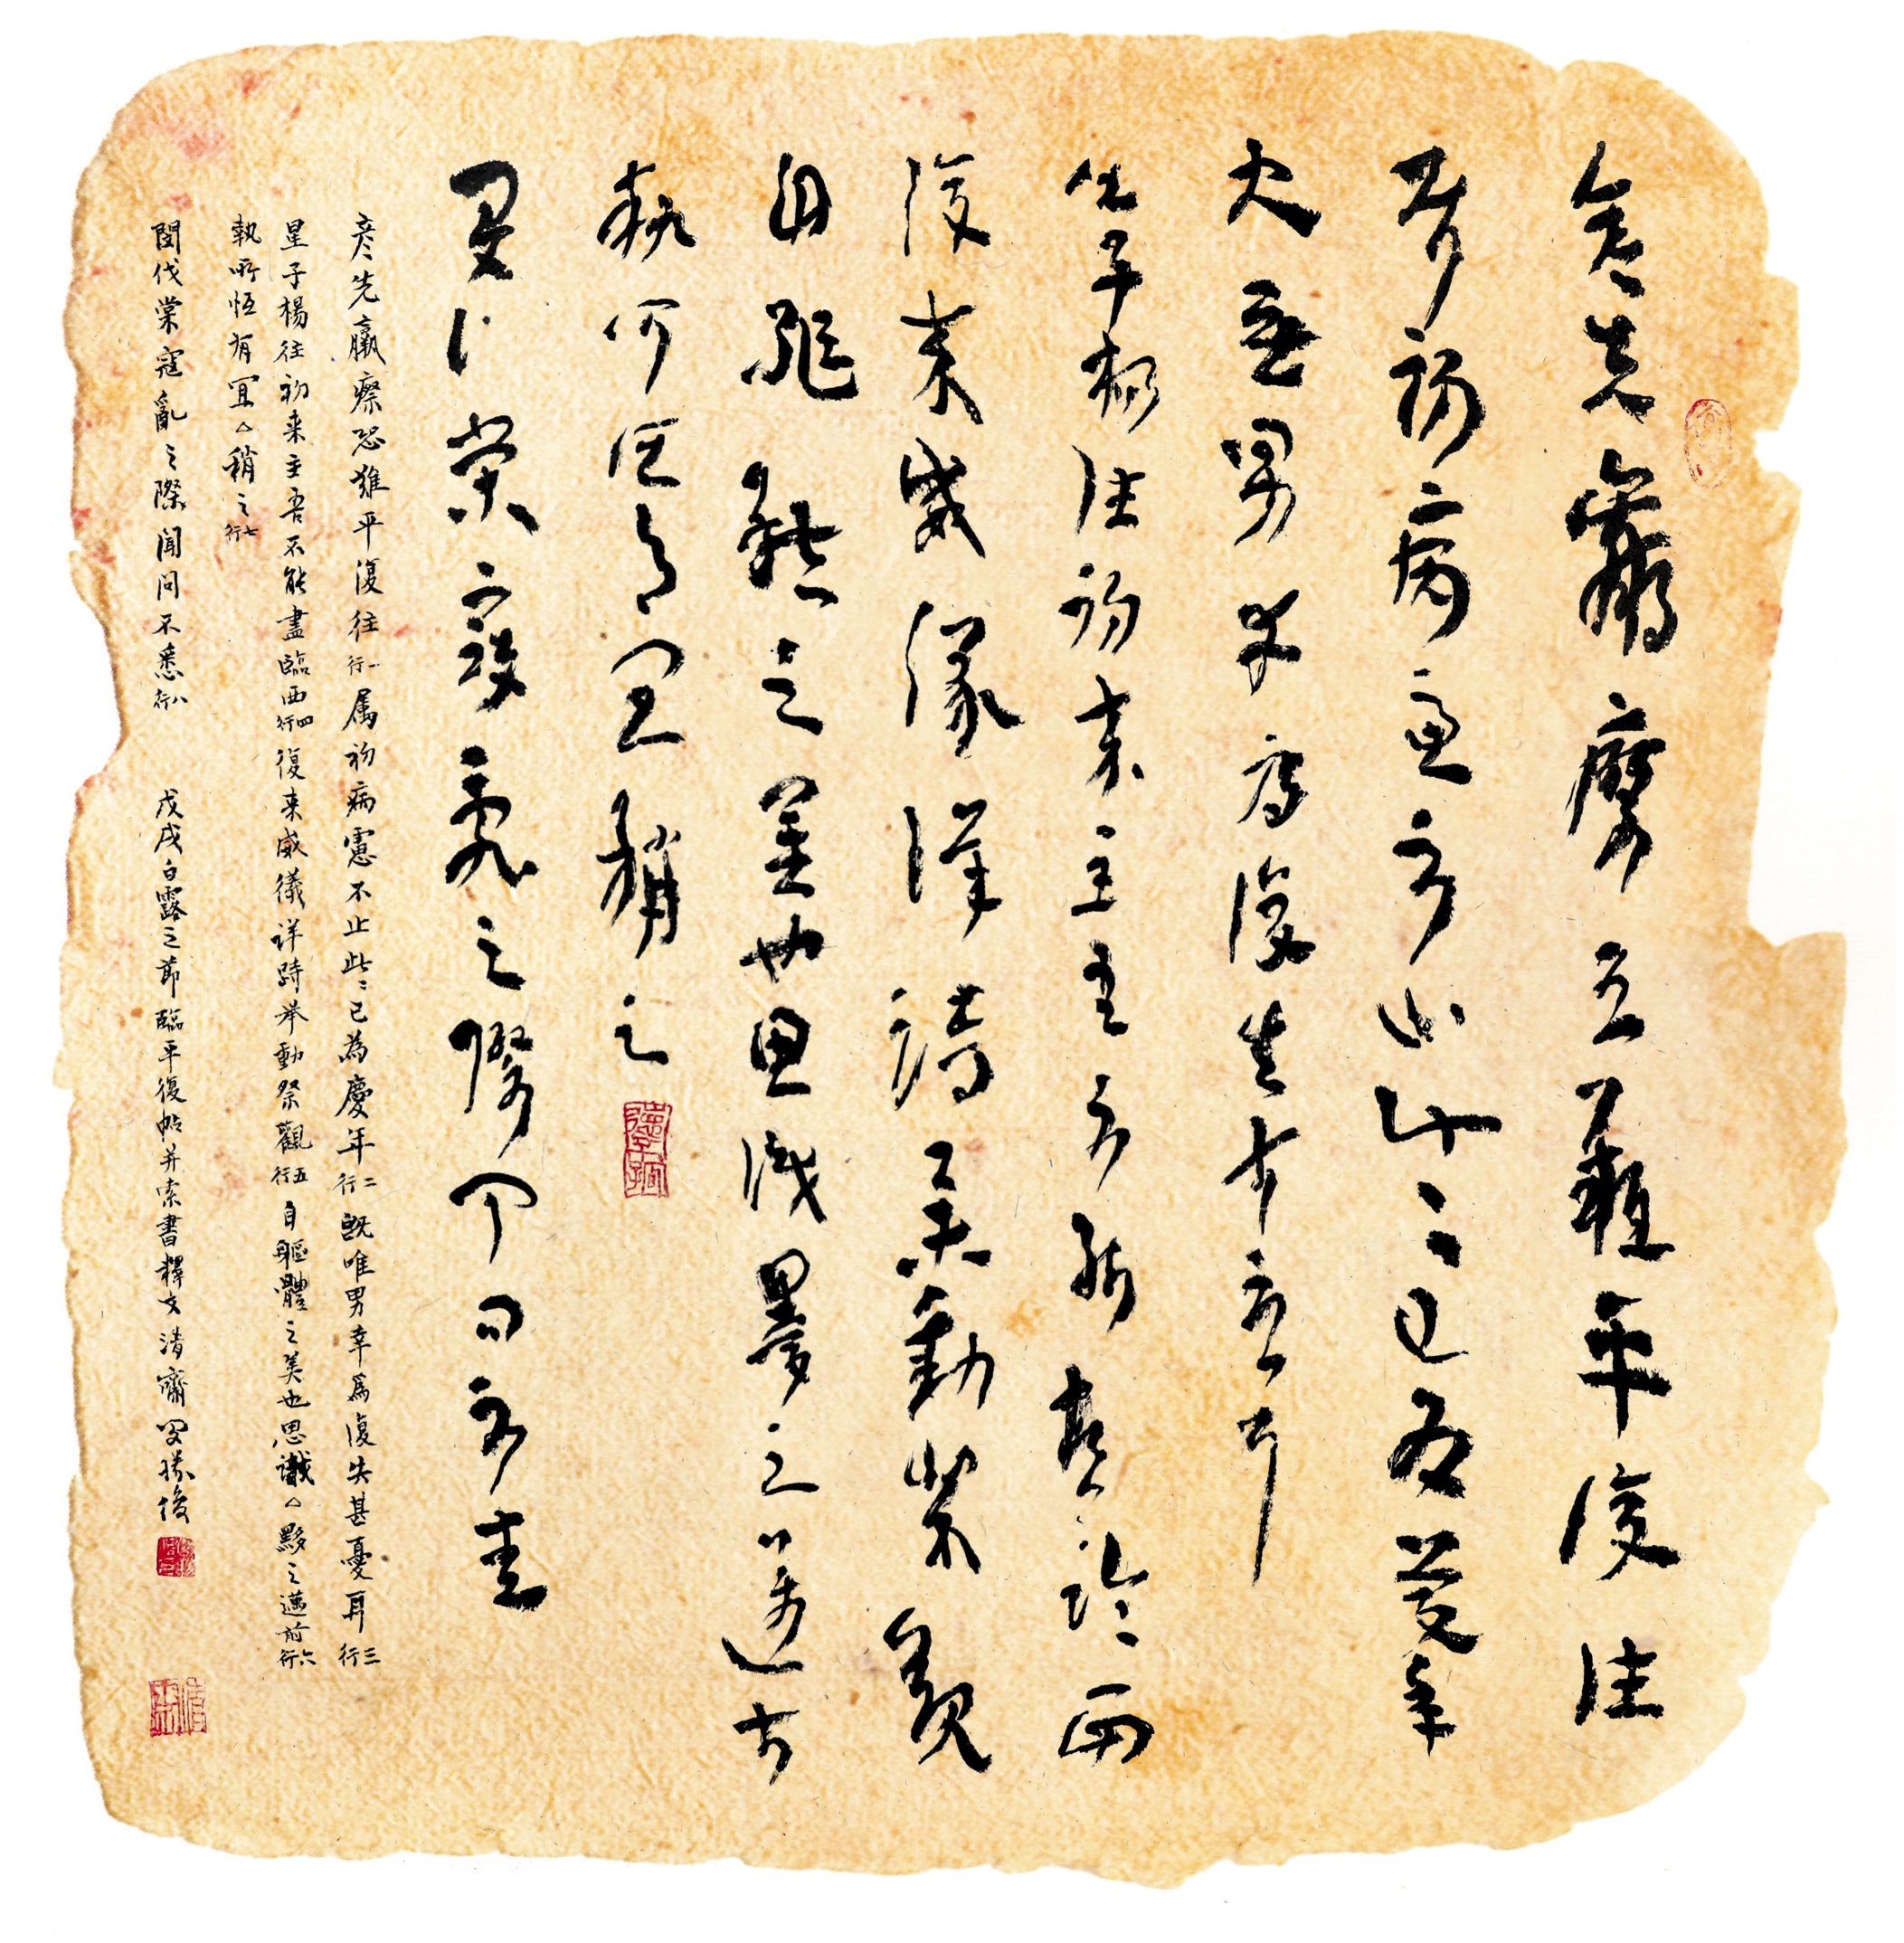 彦先羸瘵恐難平復往
属初病慮不止此〻已為慶年
既唯男幸為復失甚憂耳
星子楊往初来主吾不能盡臨西
復来威儀详跱举動祭觀
自軀體之美也思識之邁前
執所恒有宜稍之
閔伐棠寇亂之際聞問不悉
彦先羸瘵恐難平復往一行属初病慮不止此〻已為慶年二行既唯男幸為復失甚憂耳三行
星子楊往初来主吾不能盡臨西四行復来威儀详跱举動祭觀五行自軀體之美也思識△黟之邁前六行
執所恒有宜△稍之七行
閔伐棠寇亂之際聞問不悉八行 戊戌白露之節臨平復帖并索書釋文清齋勝俊